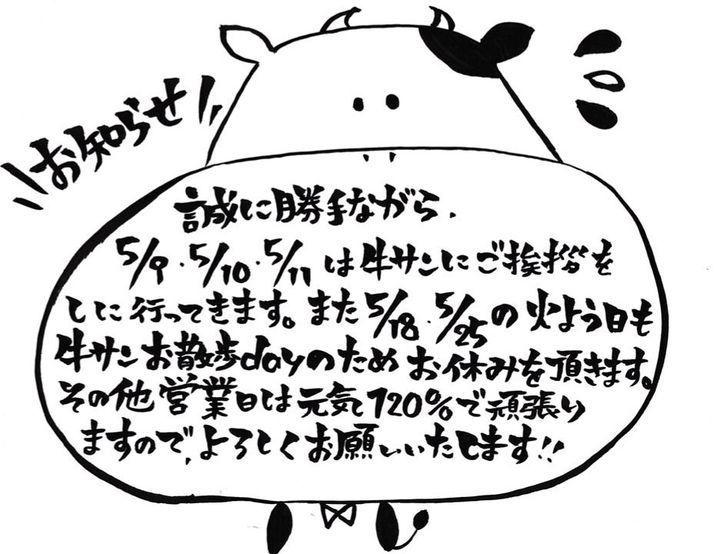 お知らせ
誠に勝手ながら、
5/9・5/10・5/11は牛サンにご挨拶を
しに行ってきます。また5/18・5/25の火よう日も
牛サンお散歩dayのためお休みを頂きます。
その他営業日は元気120%で頑張り
ますので、よろしくお願いいたします!!